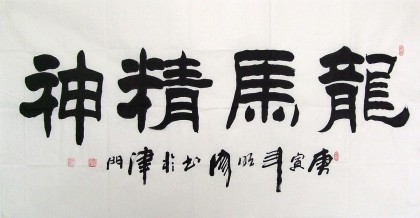 龍馬精神
庚寅年　書於津門